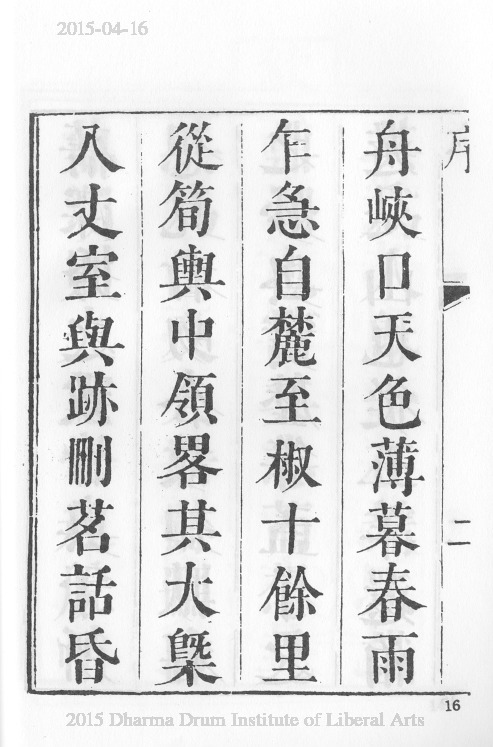 2015-04-16
序
二
舟峽口天色薄暮春雨
乍急自麓至椒十餘里
從筍輿中領畧其大槩
入丈室與跡刪茗話昏
16
2015 Dharma Drum Institute of Liberal Arts